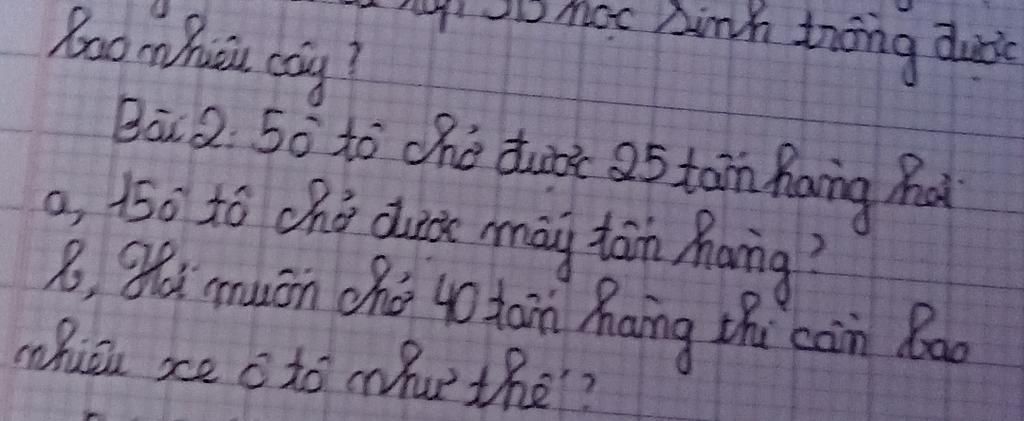 học sinh trồng được
bao nhiêu cây?
Bài 2: 5 ô tô chở được 25 tấn hàng hỏi
a, 15 ô tô chở được mấy tấn hàng?
b, Hỏi muốn chở 40 tấn hàng thì cần bao
nhiêu xe ô tô như thế?